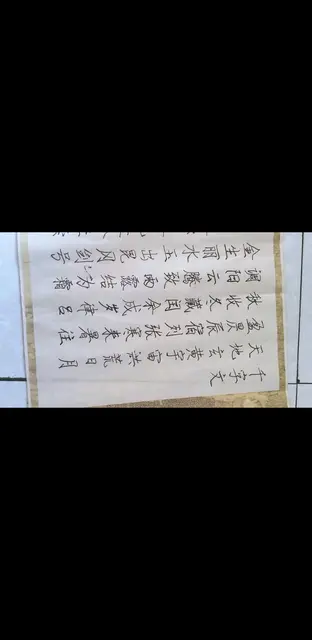 千字文
天地玄黄宇宙洪荒日月
盈昃辰宿列张寒来暑往
秋收冬藏闰余成岁律吕
调阳云腾致雨露结为霜
金生丽水玉出昆冈剑号